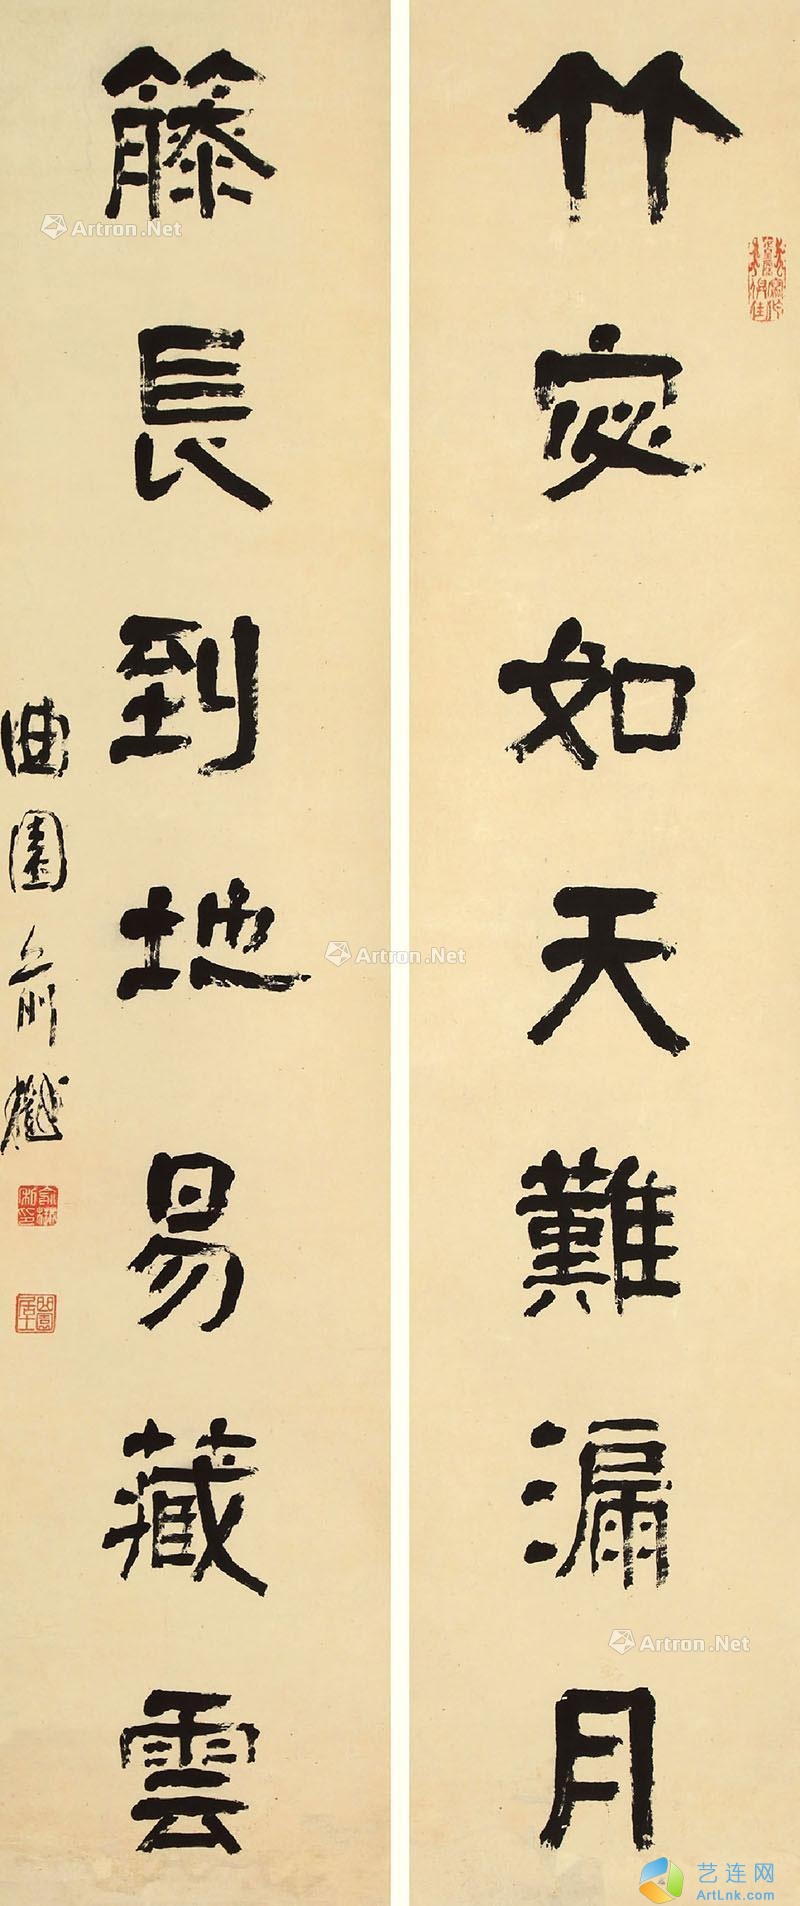 竹宻如天難漏月
籐長到地易藏雲
曲園俞樾
俞樾私印
曲園居士
Artron.Net
Artron.Net
Artron.Net
艺连网
ArtLnk.com